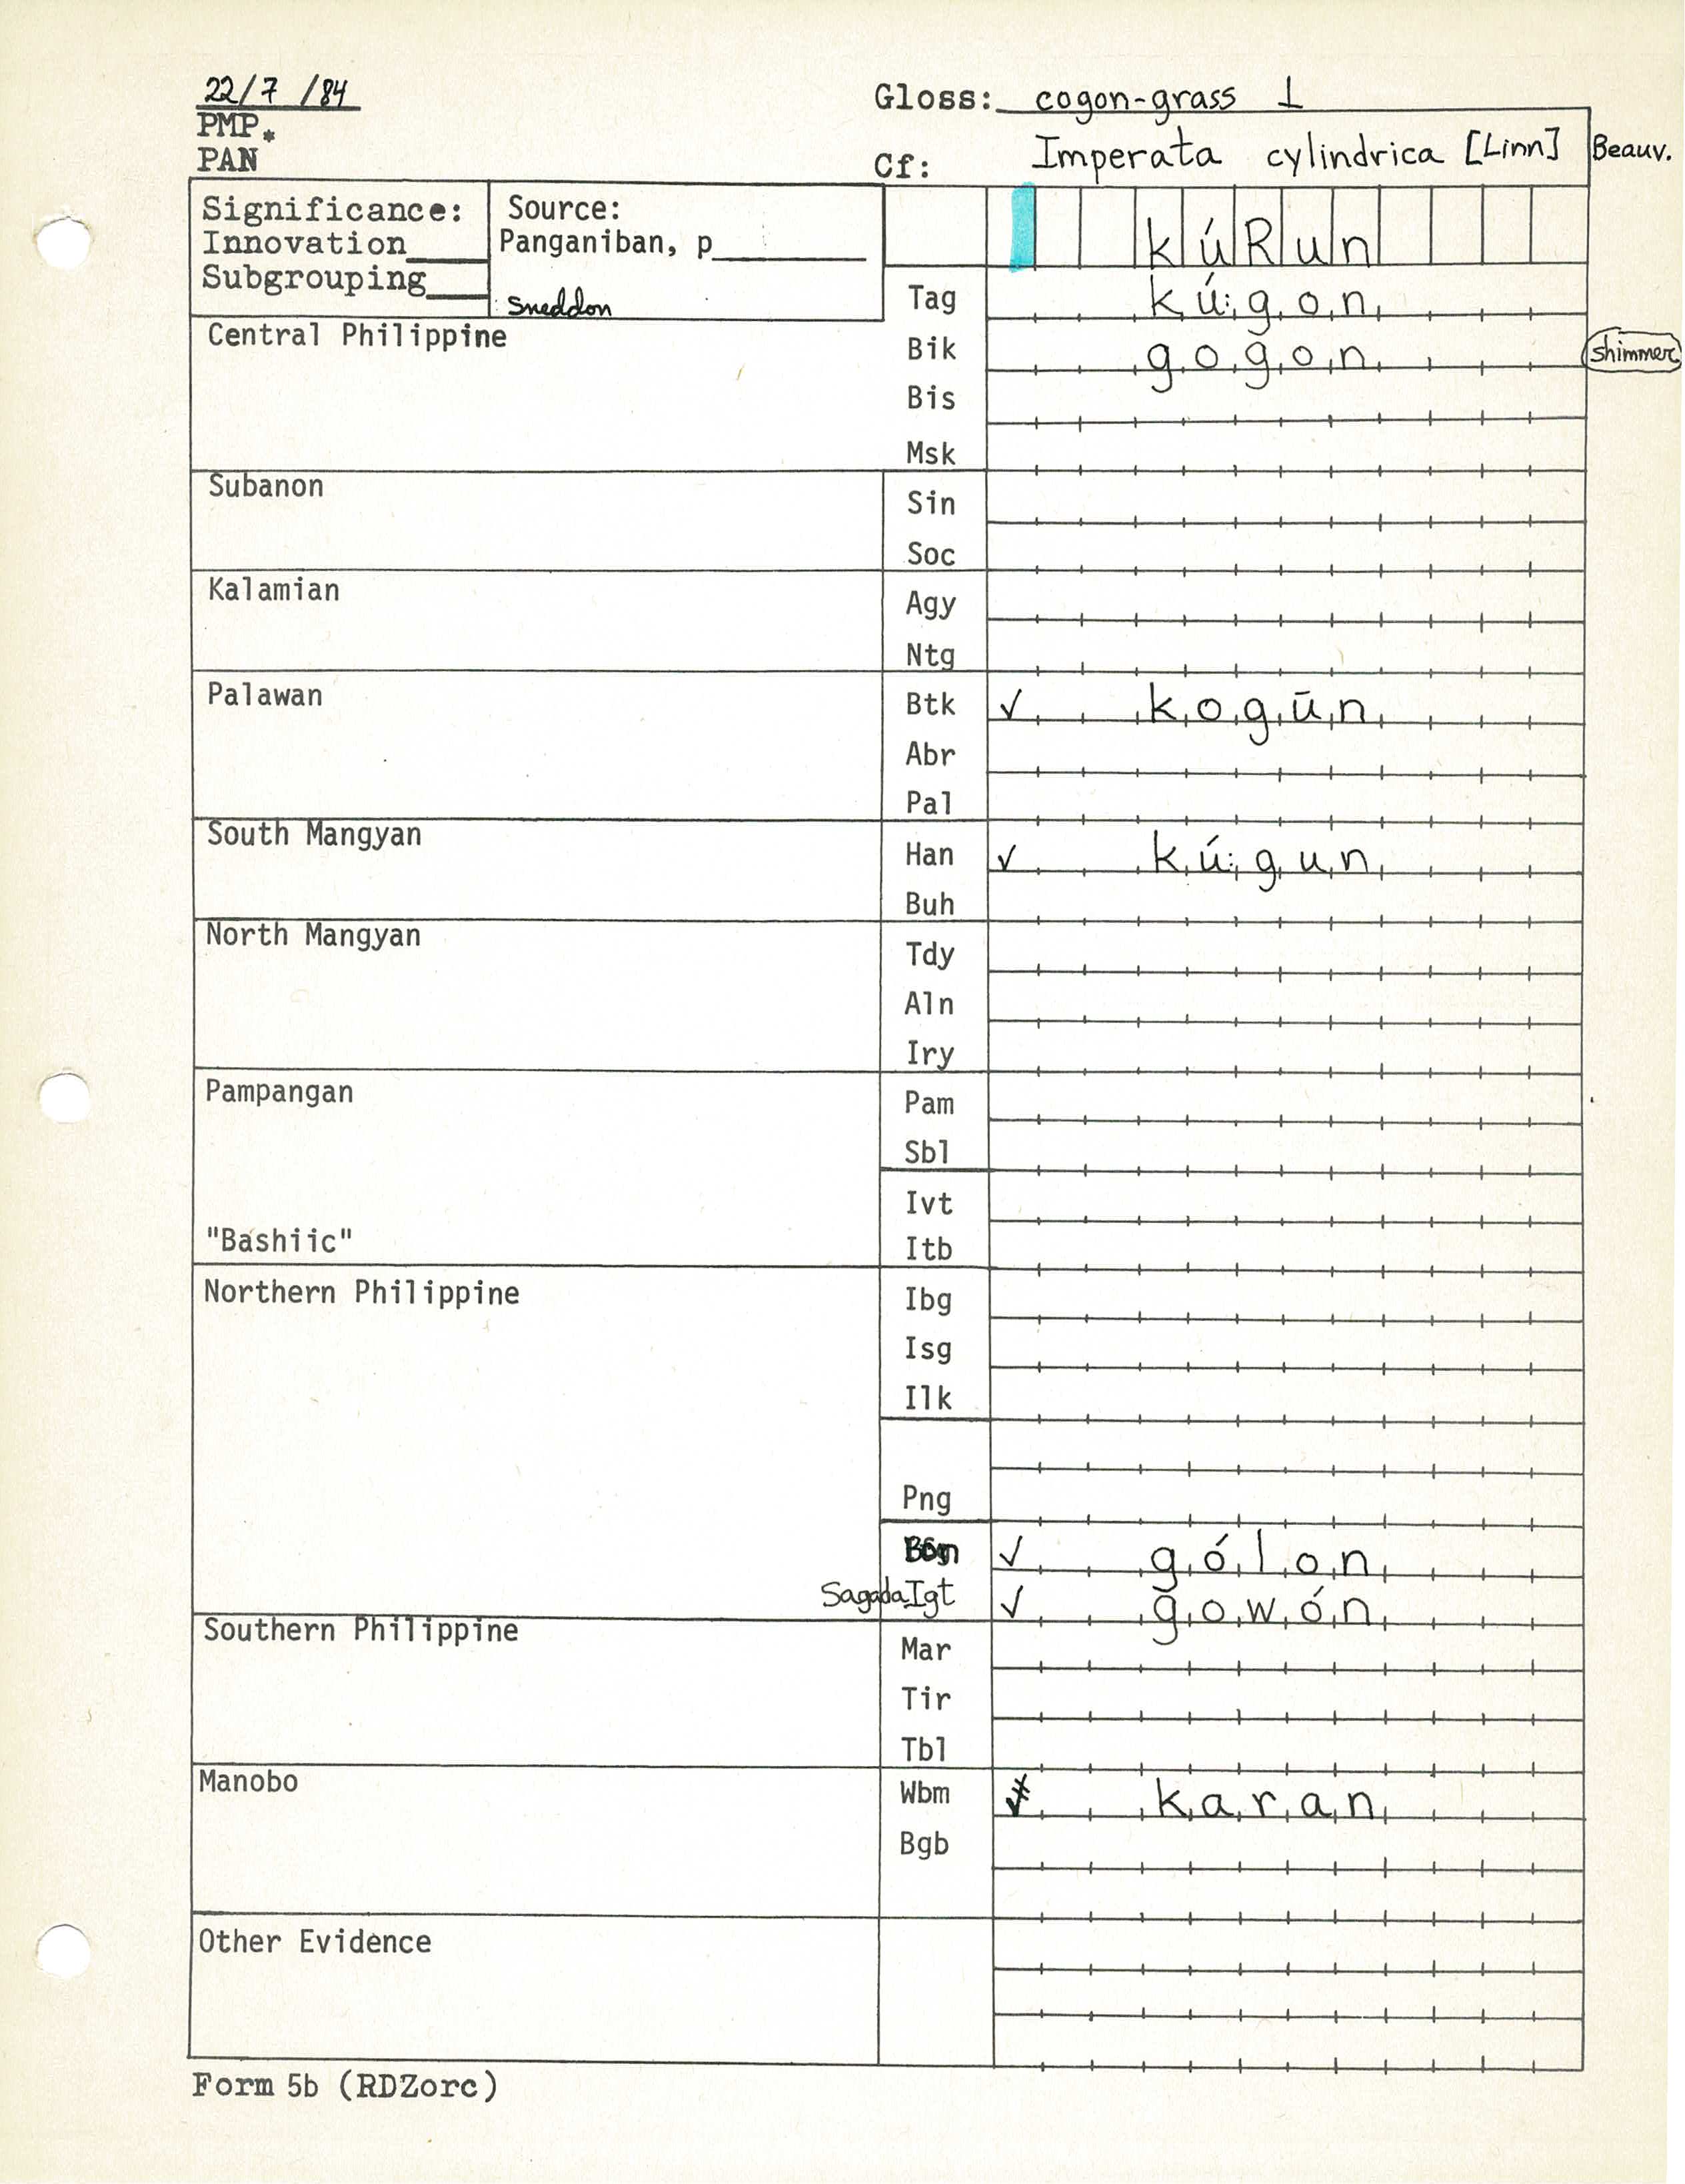 22/7/84
Gloss: cogon-grass 1
PMP*
PAN
Cf: Imperata cylindrica [Linn] Beauv.
Significance:
Innovation
Subgrouping
Source:
Panganiban, p
Sneddon
kúRun
Tag kú:gon
Central Philippine
Bik gogon shimmer
Bis
Msk
Subanon
Sin
Soc
Kalamian
Agy
Ntg
Palawan
Btk ✓ kogūn
Abr
Pal
South Mangyan
Han ✓ kú:gun
Buh
North Mangyan
Tdy
Aln
Iry
Pampangan
Pam
Sbl
Ivt
"Bashiic"
Itb
Northern Philippine
Ibg
Isg
Ilk
Png
✓ gólon
Sagada Igt ✓ gowón
Southern Philippine
Mar
Tir
Tbl
Manobo
Wbm karan
Bgb
Other Evidence
Form 5b (RDZorc)